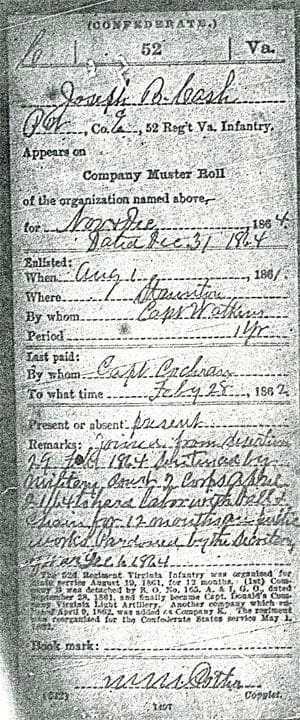 (CONFEDERATE.)
C 52 Va.
Joseph B. Cash
Pvt, Co. G, 52 Reg't Va. Infantry.
Appears on
Company Muster Roll
of the organization named above,
for Nov & Dec, 1864.
Dated Dec. 31 1864
Enlisted:
When Aug 1, 1861.
Where Staunton
By whom Capt Watkins
Period 1 Yr
Last paid:
By whom Capt. Cochran
To what time Feby 28, 1862
Present or absent present
Remarks: joined from desertion
29 1864 sentenced by
military court 2 Corps
hard labor with ball &
chain for 12 months on public
works Pardoned by the Secretary
of War Dec 6 1864
The 52d Regiment Virginia Infantry was organized for
State service August 19, 1861, for 12 months. (1st) Com-
pany B was detached by S. O. No. 165, A. & I. G. O., dated
September 28, 1861, and finally became Capt. Donald's Com-
pany Virginia Light Artillery. Another company which en-
listed April 9, 1862, was added as Company K. The regiment
was reorganized for the Confederate States service May 1,
1862.
Book mark:
(642) Copyist.